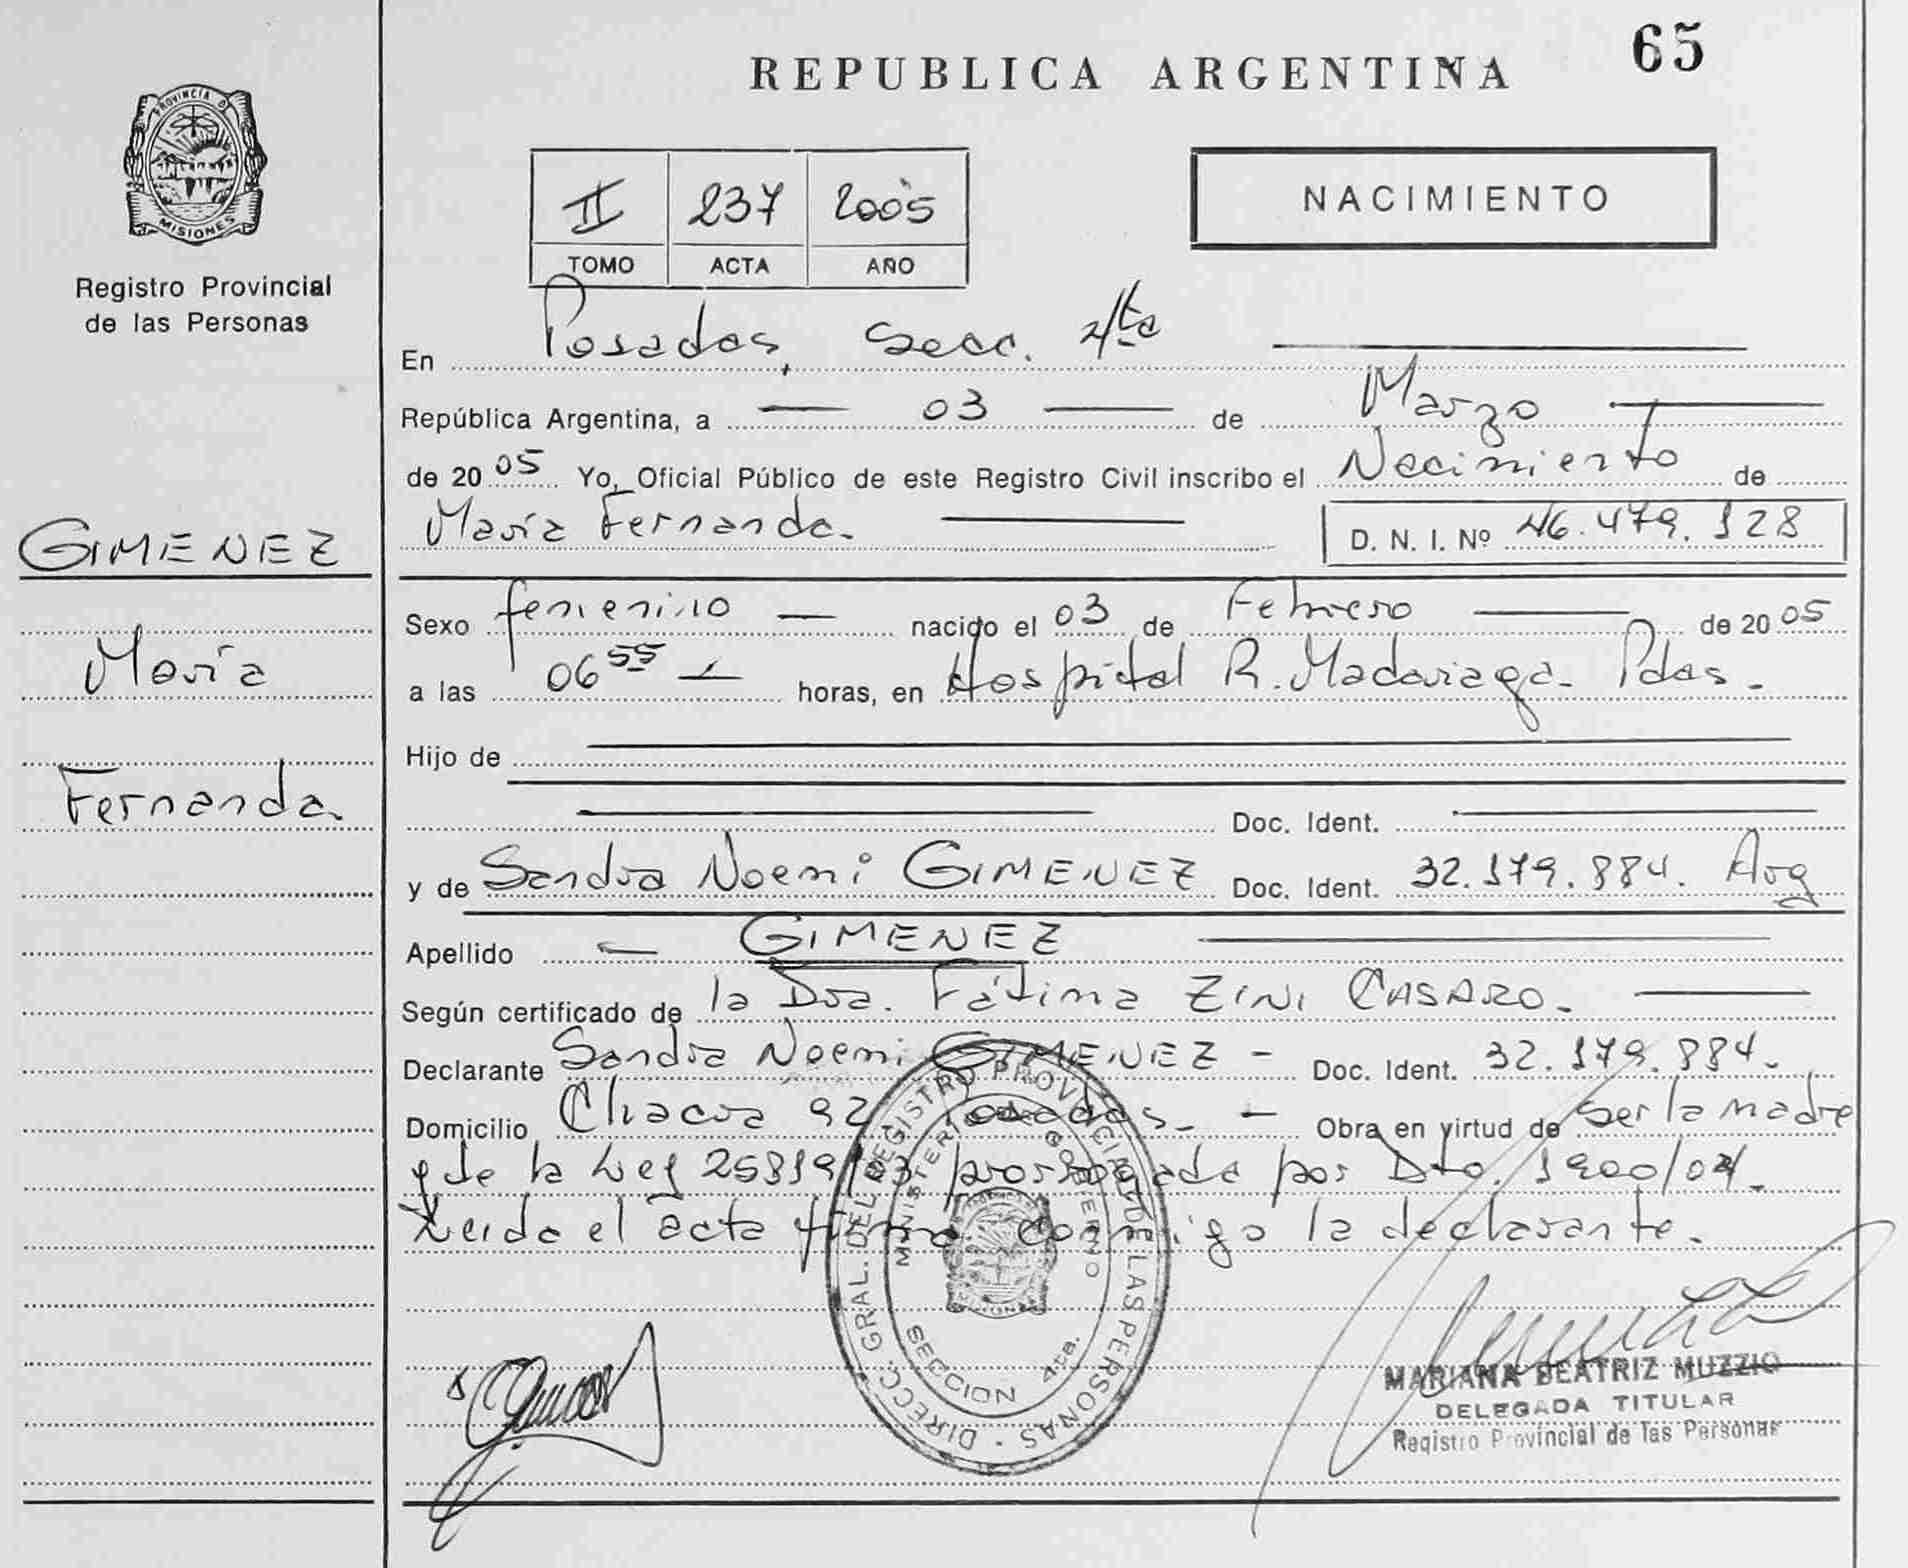 65
REPUBLICA ARGENTINA
PROVINCIA D
MISIONES
Registro Provincial
de las Personas
NACIMIENTO
II 237 2005
TOMO ACTA AÑO
En Posadas, Secc. 4ta
República Argentina, a 03 de Marzo
de 2005 Yo, Oficial Público de este Registro Civil inscribo el Nacimiento de
María Fernanda. D. N. I. Nº 46.479.128
GIMENEZ
María
Fernanda
Sexo femenino nacido el 03 de Febrero de 2005
a las 06 55 horas, en Hospital R. Madariaga. Pdas.
Hijo de
Doc. Ident.
y de Sandra Noemi GIMENEZ Doc. Ident. 32.179.884. Arg
Apellido GIMENEZ
Según certificado de la Dra. Fátima ZINI CASARO.
Declarante Sandra Noemi GIMENEZ - Doc. Ident. 32.179.884.
Domicilio Chacra 92 Posadas. - Obra en virtud de ser la madre
y de la Ley 25819/03 prorrogada por Dto. 1900/04.
Leida el acta firma conmigo la declarante.
DIRECC. GRAL. DEL REGISTRO PROVINCIAL DE LAS PERSONAS
MINISTERIO DE GOBIERNO
MISIONES
SECCION 4ta.
MARIANA BEATRIZ MUZZIO
DELEGADA TITULAR
Registro Provincial de las Personas